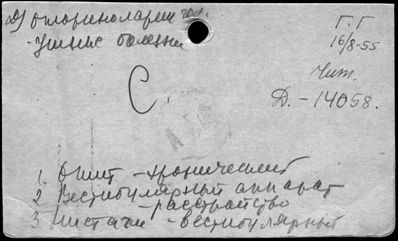 Д) отоларингол.
- Ушные болезни
Г. Г
16/8-55
Чит.
С.
Д. - 14058.
1. Отит - хронический
2 Вестибулярный аппарат
- расстройство
3 Нистагм - вестибулярный